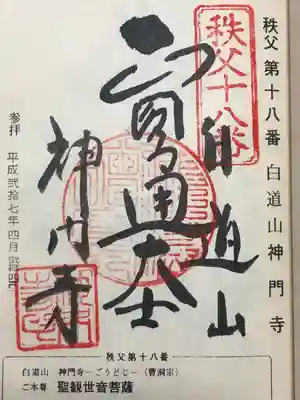 秩父 第十八番 白道山神門寺
秩父十八番
白道山
圓通大士
神門寺
参拝 平成弐拾七年四月
秩父第十八番
白道山 神門寺―ごうどじ―(曹洞宗)
ご本尊 聖観世音菩薩